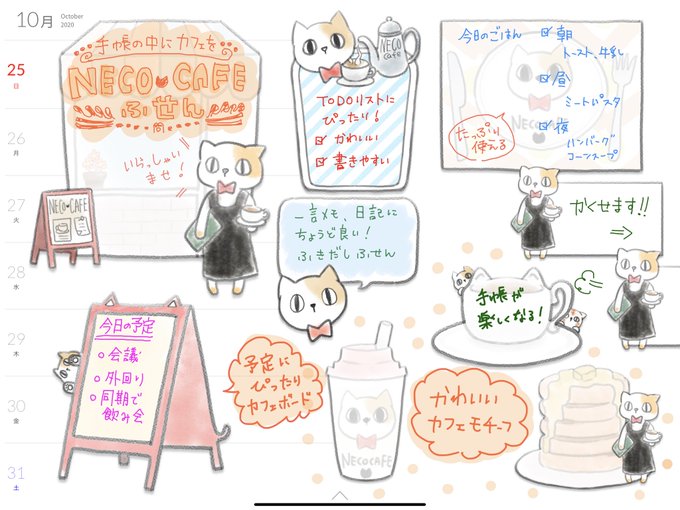 10月
October
2020
25
日
26
月
27
火
28
水
29
木
30
金
31
土
手帳の中にカフェを
NECO CAFE
ふせん
いらっしゃい
ませ!
NECO CAFE
TODOリストに
ぴったり!
かわいい
書きやすい
NECO
cafe
今日のごはん
朝
トースト、牛乳
昼
ミートパスタ
夜
ハンバーグ
コーンスープ
たっぷり
使える
NECO
一言メモ、日記に
ちょうど良い!
ふきだしふせん
かくせます!!
⇒
手帳が
楽しくなる!
今日の予定
会議
外回り
同期で
飲み会
予定に
ぴったり
カフェボード
NECOCAFE
かわいい
カフェモチーフ